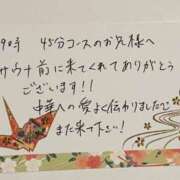 19時 45分コースのお兄様へ
サウナ前に来てくれてありがとう
ございます!!
中華への愛よく伝わりましたで
また来て下さい!